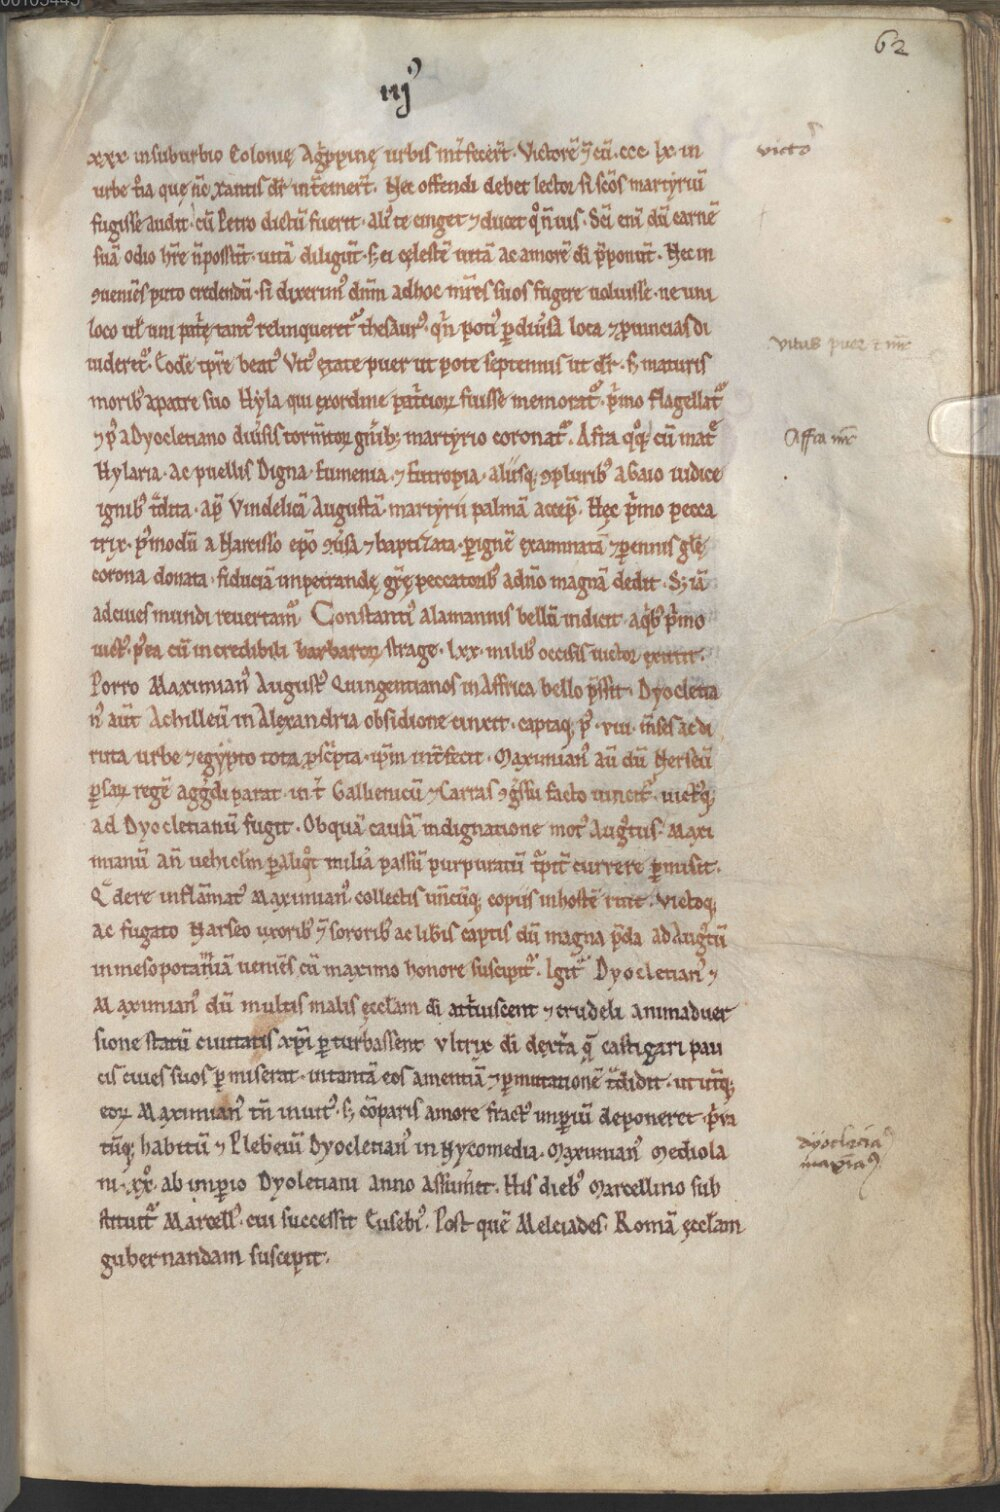 62
iij᾽
xxx· insuburbio Colonię Ag̾ppinę urbis int̾fecer̄t· Victorē ⁊ cū· ccc· lx· in
victo᷑
urbe t̾ia quę nc̄ xantis dr̄ int̄emer̄t· Nec offendi debet lector si scōs martyrū
fugisse audit· cū Petro dictū fuerit· aliꝰ te cinget ⁊ ducet qͦ n̄ uis· Sci enī dū carnē
suā odio hr̄e n̄ possūt· uitā diligūt· sꝫ ei cęlestē uitā ac amorē di p̄ponūt· Nec in
ꝯueniēs puto credendū· si dixerimꝰ dnm̄ adhoc mr̄es suos fugere uoluisse· ne uni
loco ul̄ uni patrię tantꝰ relinqueret᷑ thesaurꝰ· qn̄ potiꝰ ꝑ diuīsa loca ⁊ ꝓuincias di
uideret᷑· Eodē tp̄re beatꝰ Vitꝰ ętate puer ut pote septennis ut dr̄· sꝫ maturis
Vitus puer ⁊ mr̄
moribꝰ apatre suo Hyla qui exordine patͥcioꝝ fuisse memorat᷑· pͥmo flagellat᷑
⁊ pꝰ aDyocletiano diuīsis tormn̄toꝝ gn̄ibꝫ martyrio coronat᷑· Afra qͦqꝫ cū mat̄
Affra mr̄
Hylaria· ac puellis Digna· Eumenia· ⁊ Eutropia· aliisqꝫ ꝯpluribꝰ aGaio iudice
ignibꝰ td̄ita· ap̄ Vindelicā Augustā· martyrii palmā accep̄· Hęc pͥmo pecca
trix· pꝰmodū a Narcisso epō ꝯuīsa ⁊ baptizata· ꝑignē examinatā ⁊ ꝑennis glę
corona donata· fiduciā impetrandę gr̄ę peccatoribꝰ adnō magnā dedit· Sꝫ iā
adciues mundi reuertam᷑· Constantiꝰ alamannis bellū indicit· aqͥbꝰ pͥmo
uictꝰ· pꝰea cū incredibili barbaroꝝ strage· lxx· milibꝰ occisis uictor exiuit·
Porro Maximianꝰ Augustꝰ Quingentianos in Affrica bello p̄ssit· Dyocletia
nꝰ aūt Achilleū in Alexandria obsidione cinxit· captaqꝫ pꝰ· viii· m̄ses ac di
ruta urbe ⁊ egypto tota ꝓscͥpta· ipm̄ int̄fecit· Maximianꝰ aū dū Nerseū
ꝑsaꝝ regē agg̾di parat· int̾ Gallienicū ⁊ Carras ꝯg̾ssu facto uincit᷑· uictꝰqꝫ
ad Dyocletianū fugit· Obquā causā indignatione motꝰ Aug̾tus· Maxi
mianū an̄ uehiclm̄ ꝑ aliqͦt milia passū purpuratū t̾pit̄ currere ꝑmisit·
Qͣ de re inflāmatꝰ Maximianꝰ· collectis un̄cūqꝫ copiis inhostē ruit· Victoqꝫ
ac fugato Narseo uxoribꝰ ⁊ sororibꝰ ac libīs captis cū magna p̄da ad Aug̾tū
inmesopotamiā ueniēs cū maximo honore suscipit᷑· Igit᷑ Dyocletianꝰ ⁊
Maximianꝰ dū multis malis ęcclam di att̄iuiscent ⁊ crudeli animaduer
sione statū ciuitatis xp̄i ꝑturbassent Vltrix di dext̄a qͣ castigari pau
cis ciues suos ꝑmiserat· intantā eos amentiā ⁊ ꝑmutationē td̄idit· ut ut̄qꝫ
eoꝝ Maximianꝰ tn̄ inuitꝰ· sꝫ cōparis amore fractꝰ impiū deponeret· pͥua
tūqꝫ habitū ⁊ Plebeiū Dyocletianꝰ in Nycomedia· Maximianꝰ Mediola
dyocleciaꝰ
maxiaꝰ
ni· xxͦ· ab impio Dyoletiani anno Assumet· His diebꝰ Marcellino sub
stituit᷑ Marcellꝰ· cui successit Eusebiꝰ· Post quē Melciades· Romā ęcclam
gubernandam suscepit·